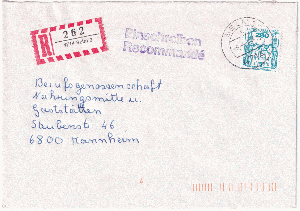 R
262
Einschreiben
Recommandé
Berufsgenossenschaft
Nahrungsmittel u.
Gaststätten
Steubenstr. 46
6800 Mannheim